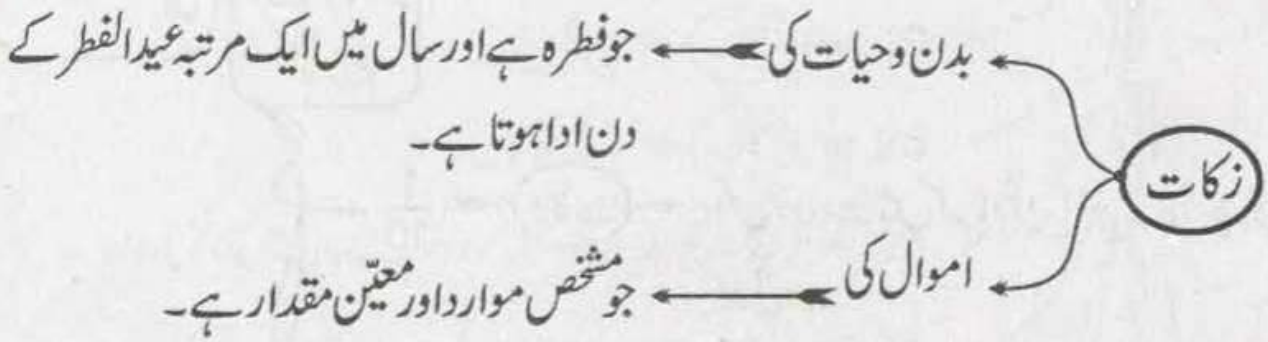 زکات
بدن و حیات کی
جو فطرہ ہے اور سال میں ایک مرتبہ عیدالفطر کے
دن ادا ہوتا ہے۔
اموال کی
جو مشخص موارد اور معیّن مقدار ہے۔